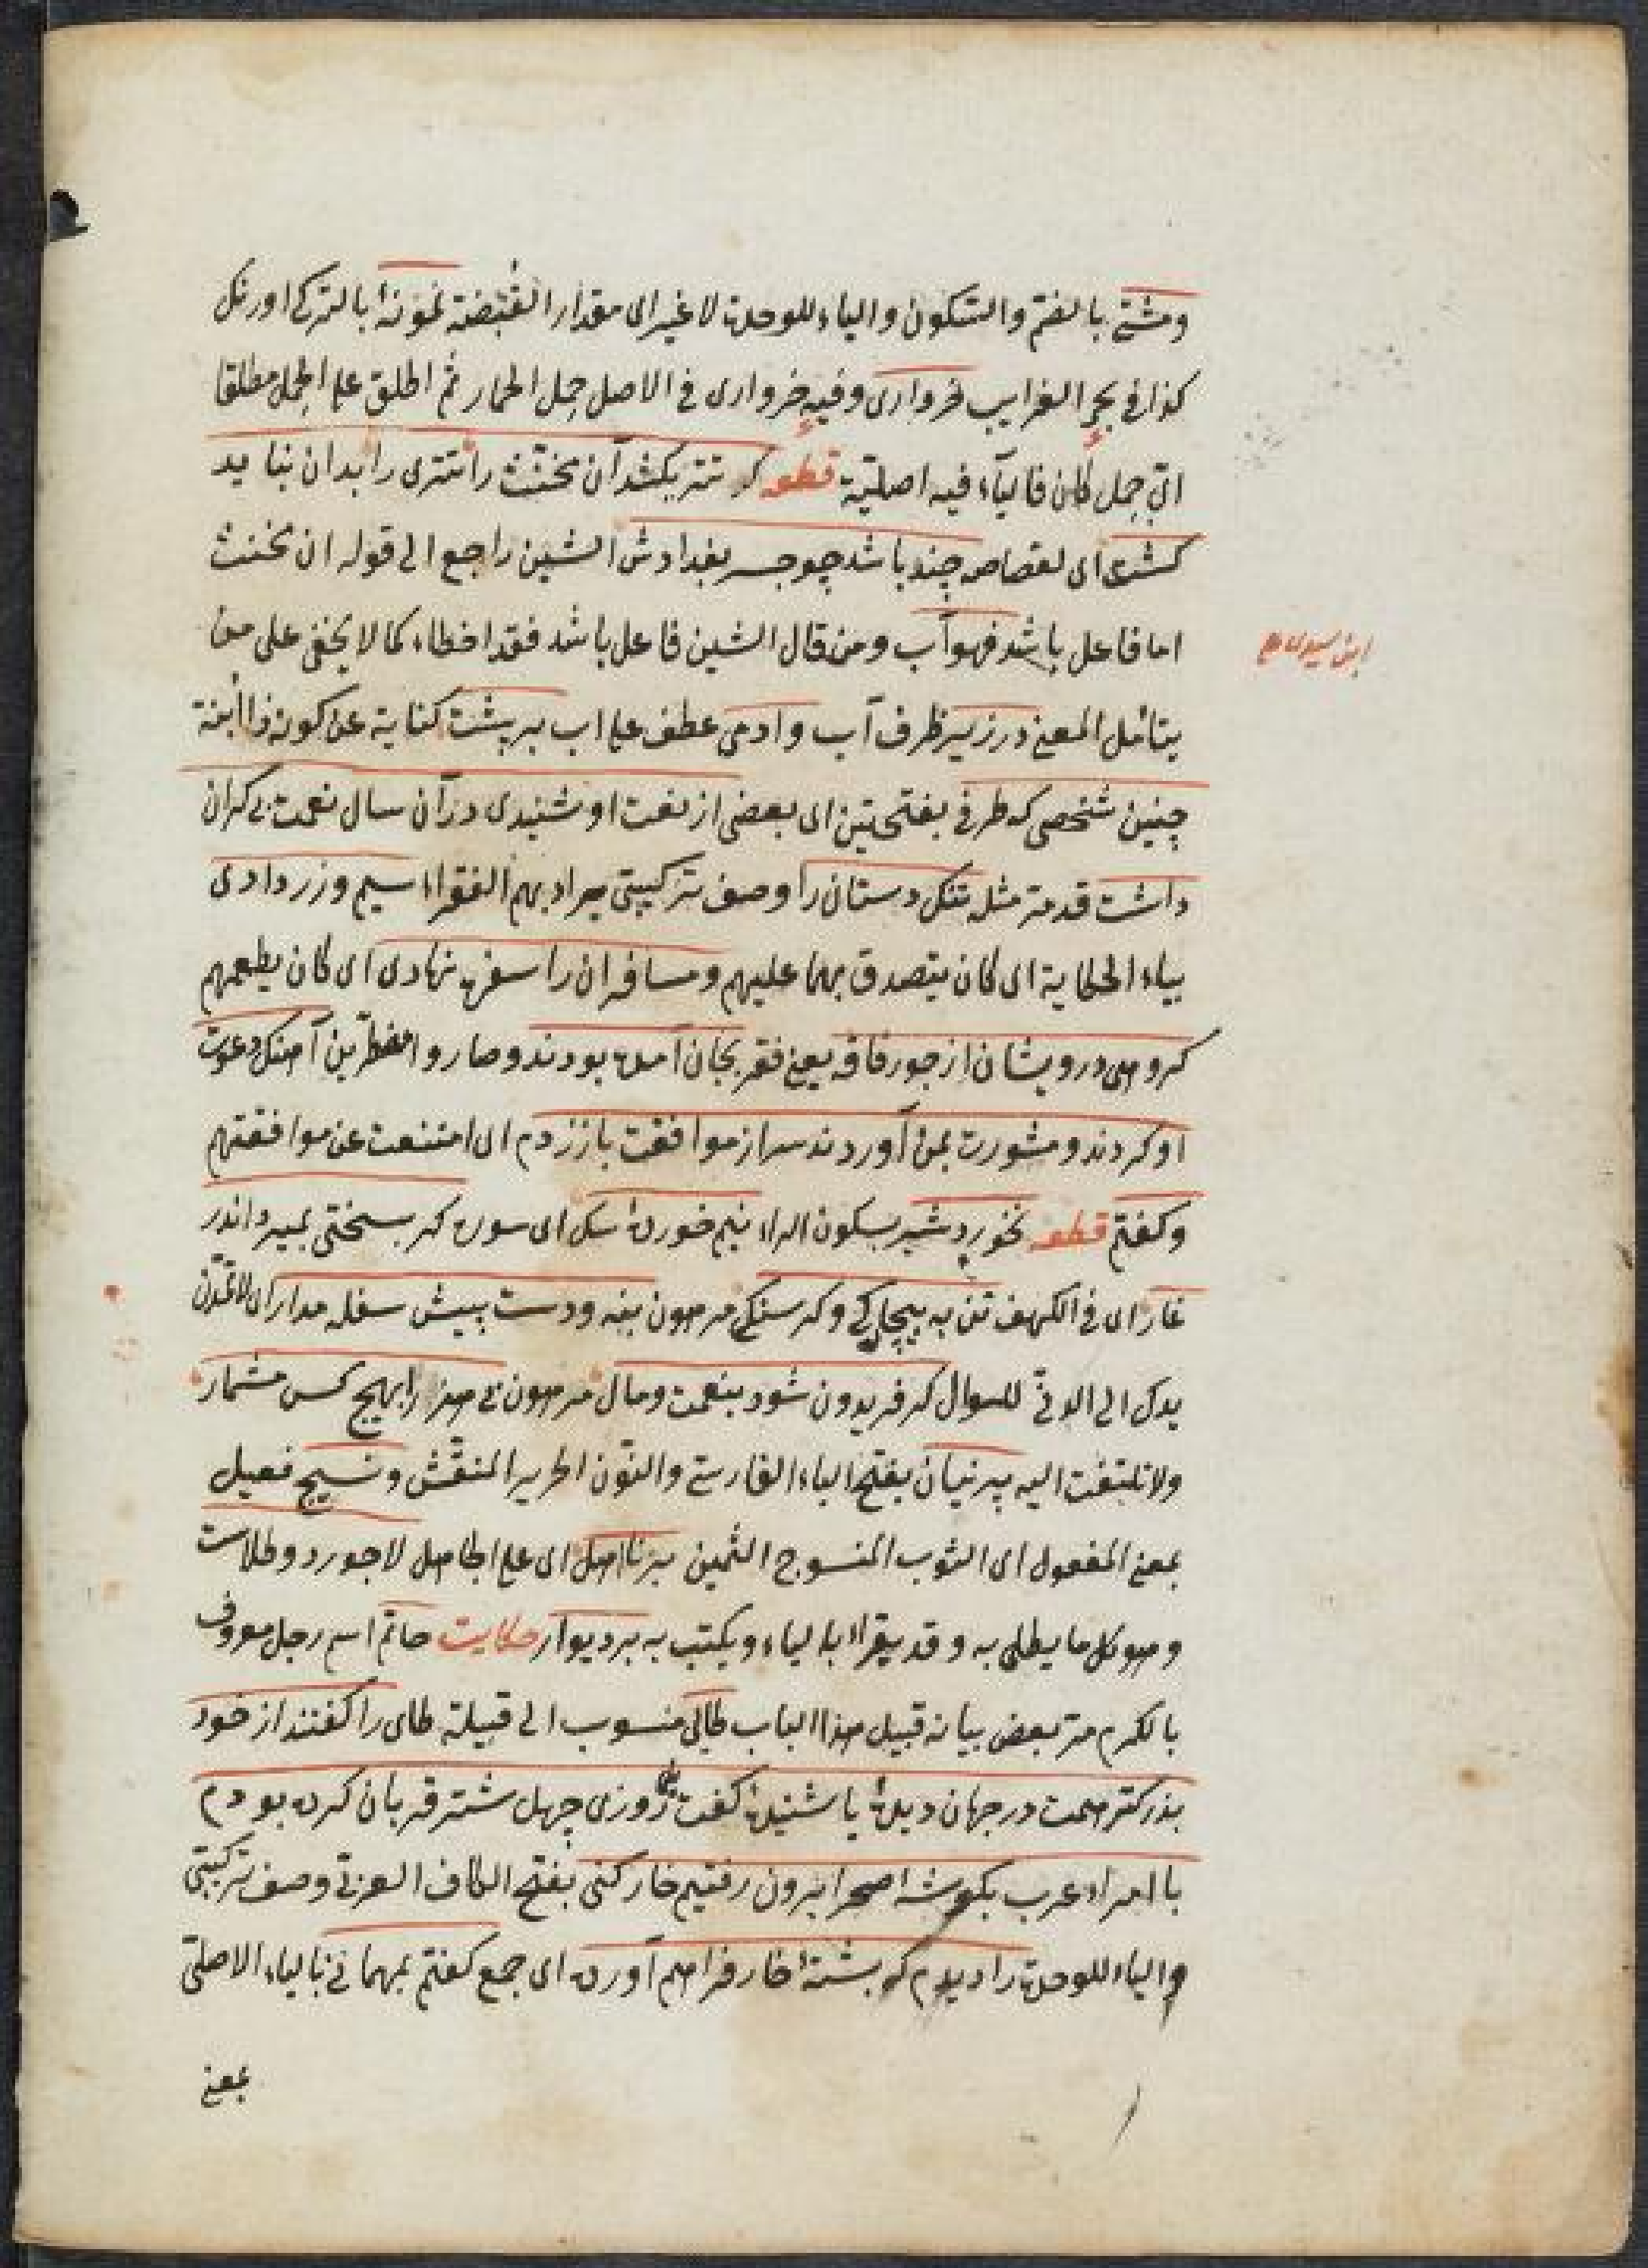 ومشتی بالضم والسکون والیاء للوحدة لا غیر ای مقدار القبضة نمونهٔ بالترکی اورنک
کذا فی بحر الغرایب خرواری وفیه خرواری فی الاصل حمل الحمار ثم اطلق علی الحمل مطلقا
ای حمل کان فالیاء فیه اصلیة قطعه کر تتر بکشد آن مخنث را تتری را بدان نباید
کشت ای لقصاص چند باشد چو جسر بغدادش الشین راجع الی قوله ان مخنث
اما فاعل باشد فهو آب ومن قال الشین فاعل باشد فقد اخطاء کما لا یخفی علی من
ابن سیدی علی
یتأمل المعنی در زیر ظرف آب وادمی عطف علی اب بر پشت کنایة عن کونه ذا ابنة
چنین شخصی که طرفی بفتحتین ای بعضی از نعت او شنیدی در آن سال نعمت بی کران
داشت قد مر مثله تنک دستان را وصف ترکیبی یراد بهم الفقراء سیم وزر دادی
بیاء الحکایة ای کان یتصدق بهما علیهم ومسافران را سفره نهادی ای کان یطعمهم
کروهی درویشان از جور فاقه یعنی فقر بجان آمده بودند وصاروا مضطرین آهنک دعوت
او کردند ومشورت بمن آوردند سر از موافقت باز زدم ای امتنعت عن موافقتهم
وکفتم قطعه نخورد شیر بسکون الراء نیم خوردهٔ سک ای سوره کر بسختی بمیرد اندر
غار ای فی الکهف تن به بیچارکی وکرسنکی مرهون بنه ودست پیش سفله مدار ای لا تمدن
یدک الی الدنی للسوال کر فریدون شود بنعمت ومال مرهون بی هنر را بهیچ کس مشمار
ولا تلتفت الیه پرنیان بفتح الباء الفارسی والنون الحریر المنقش ونسیج فعیل
بمعنی المفعول ای الثوب المنسوج الثمین بر نا اهل ای علی الجاهل لاجورد وطلاست
وهو کل ما یطلی به وقد یقرا بالیاء ویکتب به بر دیوار حکایت حاتم اسم رجل معروف
بالکرم مر بعض بیانه قبیل هذا الباب طائی منسوب الی قبیلة طای را کفتند از خود
بزرکتر همت در جهان دیدهٔ یا شنیدهٔ کفت بلی روزی چهل شتر قربان کرده بودم
با امراء عرب بکوشهٔ صحرا بیرون رفتیم خار کنی بفتح الکاف العربی وصف ترکیبی
والیاء للوحدة را دیدم که پشتهٔ خار فراهم آورده ای جمع کفتم بمهمانی بالیاء الاصلی
بمعنی